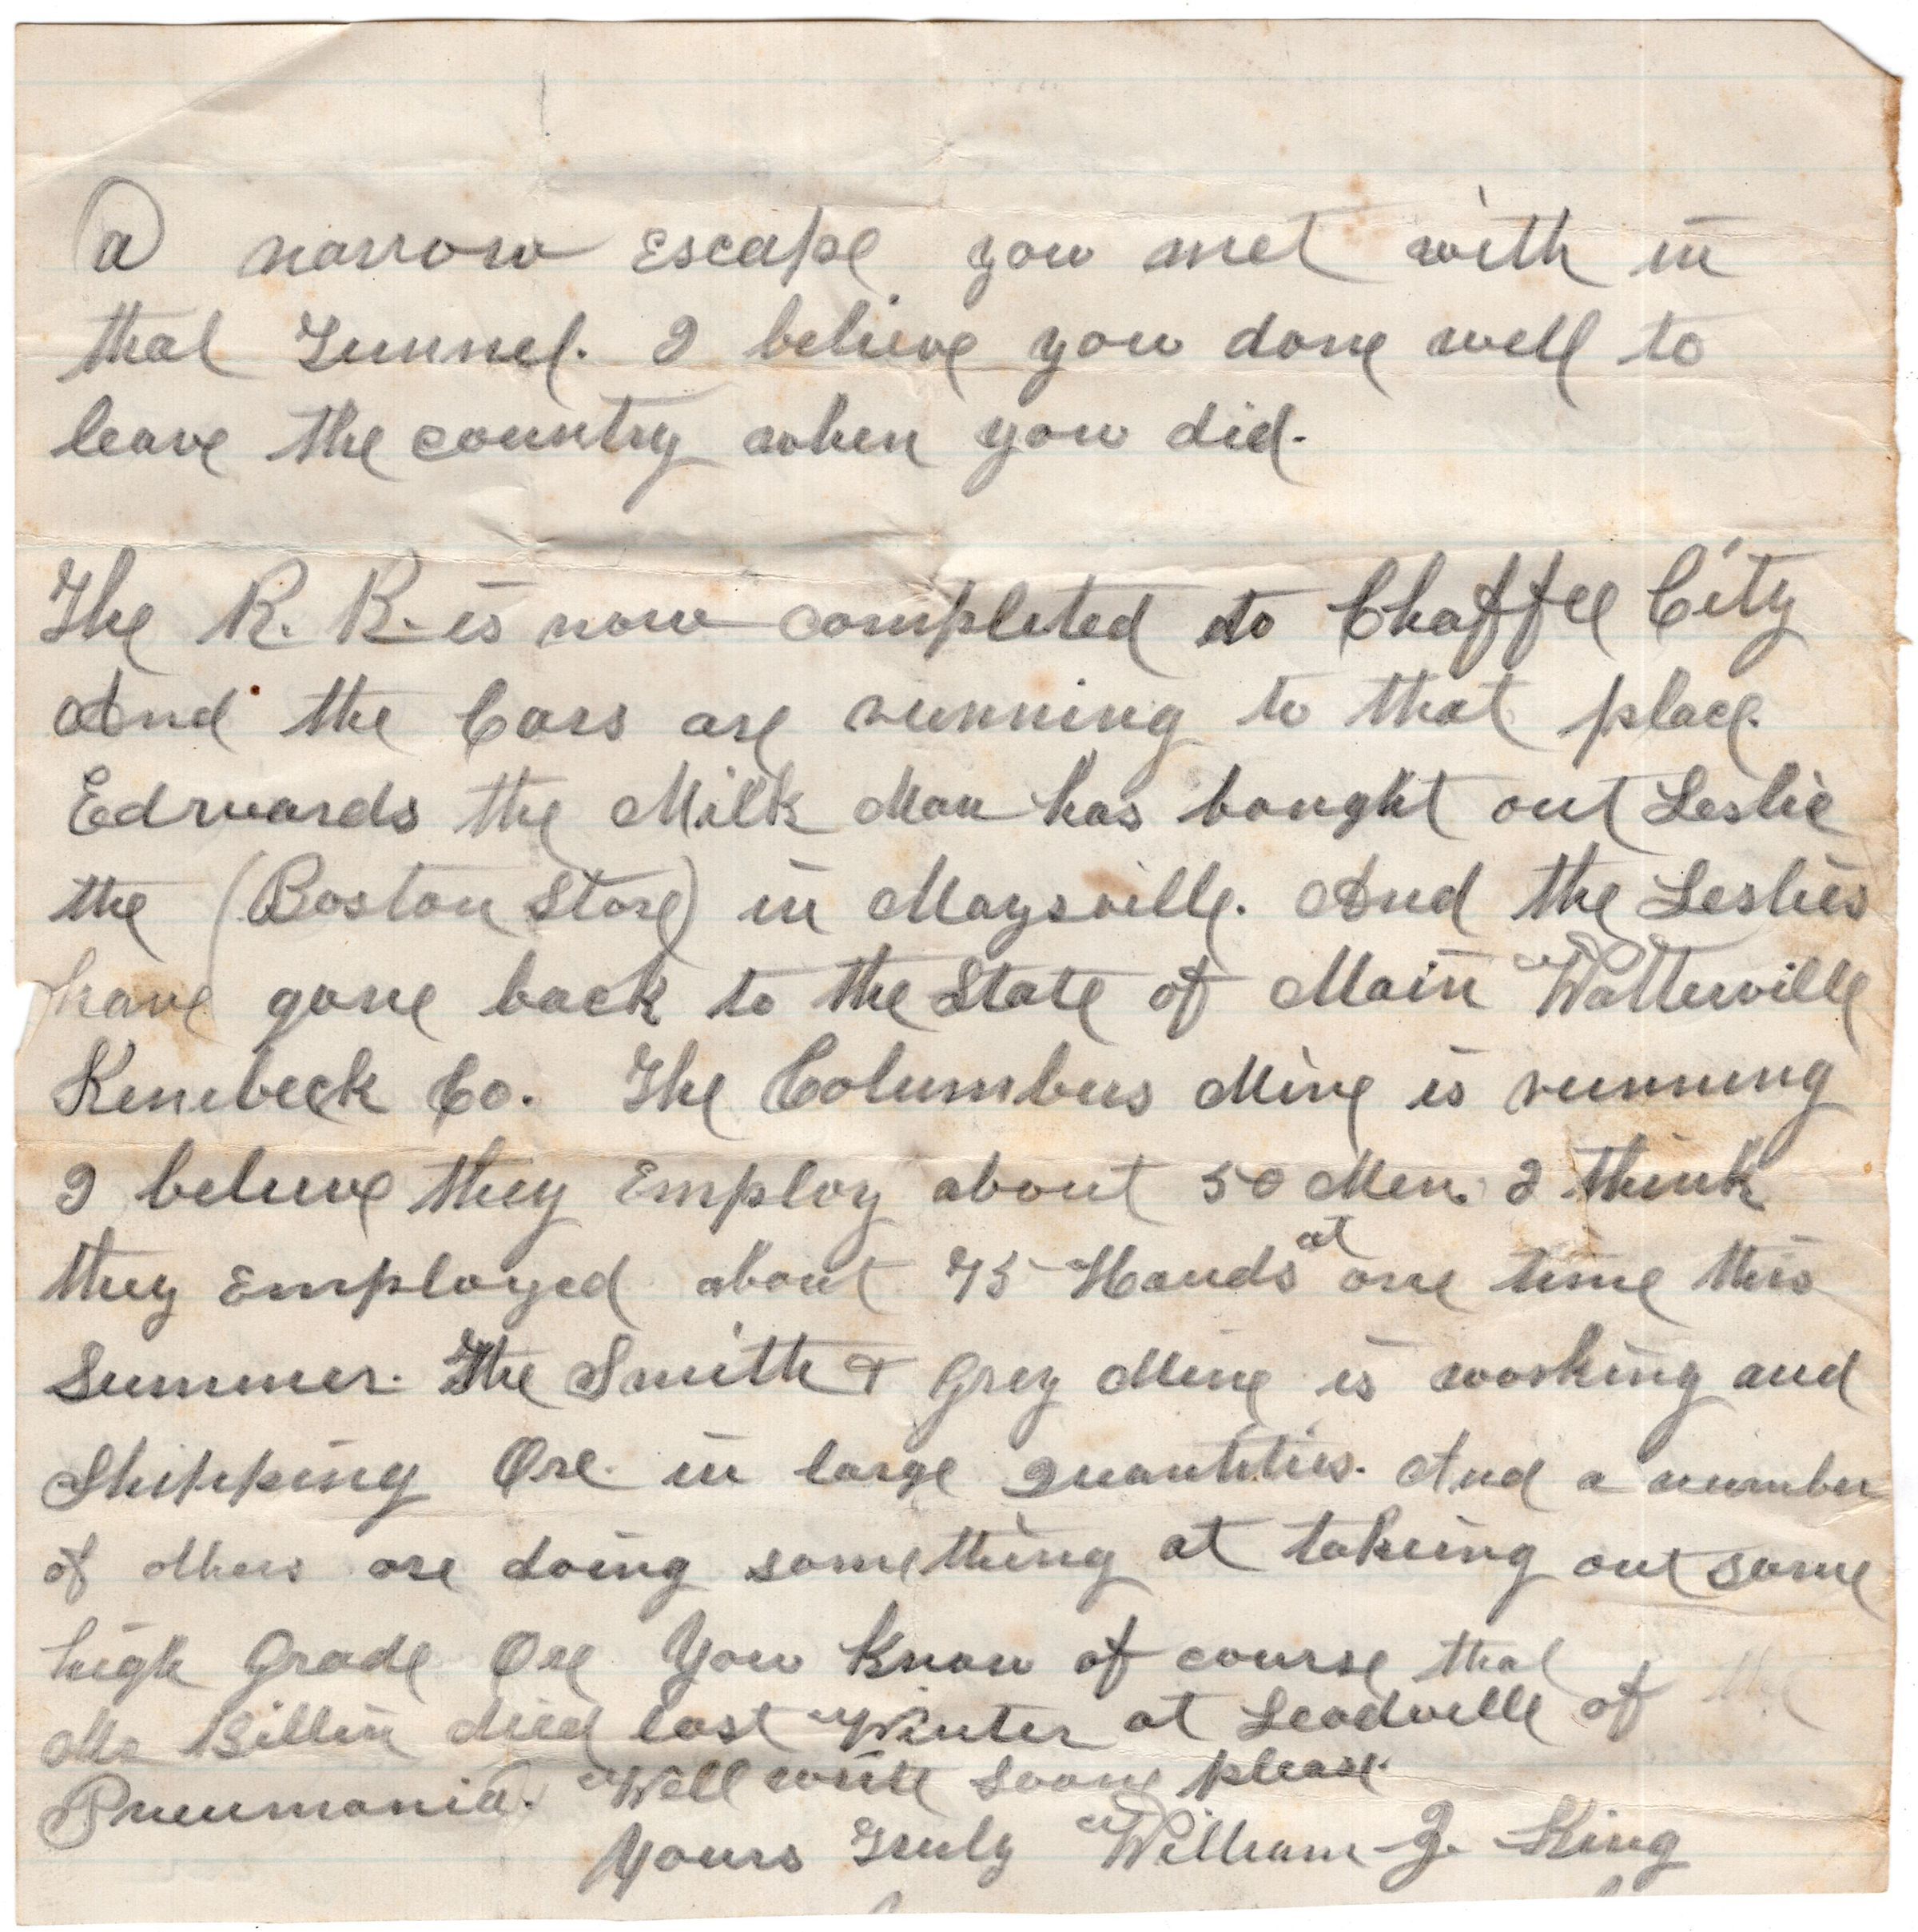 a narrow Escape you met with in
that Tunnel. I believe you done well to
leave the country when you did.
The R. R. is now completed to Chaffee City
And the Cars are running to that place.
Edwards the Milk Man has bought out Leslie
the (Boston Store) in Maysville. And the Leslies
have gone back to the State of Main Watterville
Kenebeck Co. The Columbus Mine is running
I believe they Employ about 50 Men. I think
they Employed about 75 Hands at one time this
Summer. The Smith & Grey Mine is working and
Shipping Ore in large quantities. And a number
of others are doing something at takeing out some
high Grade Ore You Know of course that
Mr Billin died last Winter at Leadville of the
Pneumonia. Well write soone please.
Yours Truly William J. King